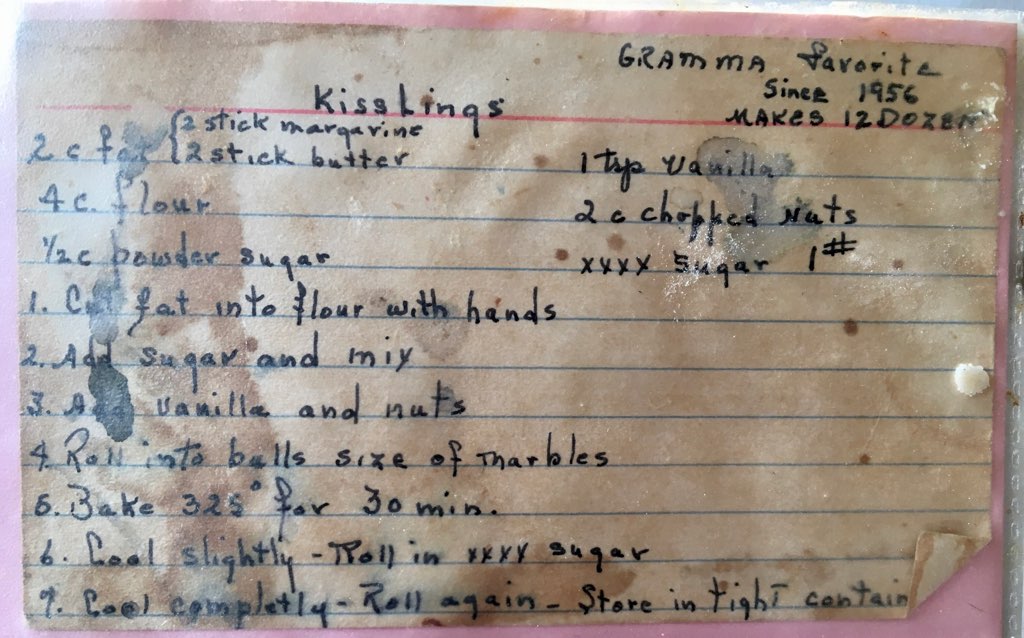 GRAMMA favorite
Since 1956
MAKES 12 DOZEN
KissLings
2 c fat { 2 stick margarine
2 stick butter
4 c. flour
1/2 c powder sugar
1 tsp vanilla
2 c chopped nuts
xxxx sugar 1#
1. Cut fat into flour with hands
2. Add sugar and mix
3. Add vanilla and nuts
4. Roll into balls size of marbles
5. Bake 325° for 30 min.
6. Cool slightly - Roll in xxxx sugar
7. Cool completly - Roll again - Store in tight contain